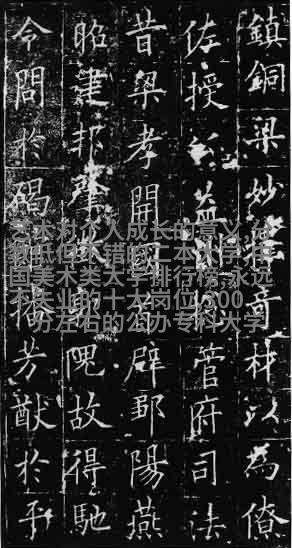 鎮銅梁妙奇材以為僚
佐授益州管府司法
昔梁孝開國首辟鄒陽燕
昭建邦肇郭隗故得馳
令問於碣播芳猷於平
艺术对个人成长的意义
数低但不错的二本大学
国美术类大学排行榜,永远
不失业的十大岗位,300
分左右的公办专科大学